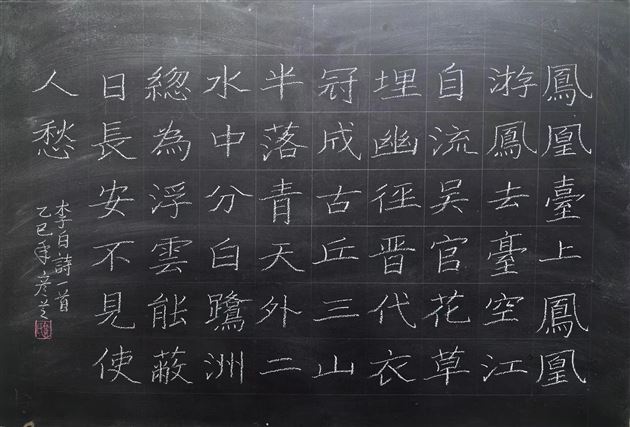 鳳凰臺上鳳凰
游鳳去臺空江
自流吳宮花草
埋幽徑晋代衣
冠成古丘三山
半落青天外二
水中分白鷺洲
緫為浮雲能蔽
日長安不見使
人愁
李白詩一首
乙巳年彦